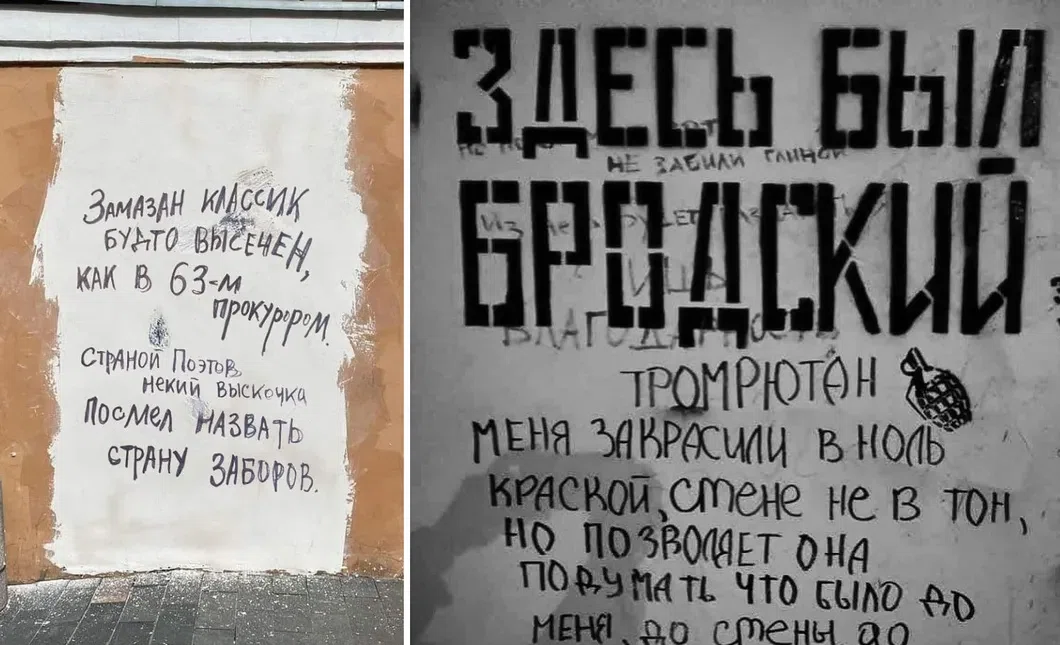 Замазан классик
будто высечен,
как в 63-м
прокурором.
Страной Поэтов
некий выскочка
посмел назвать
страну заборов.
ЗДЕСЬ БЫЛ
НЕ ЗАБИЛИ ГЛИНОЙ
БРОДСКИЙ
ИЗ
БЛАГОДАРНОСТЬ
ТРОМРЮТАН
МЕНЯ ЗАКРАСИЛИ В НОЛЬ
КРАСКОЙ, СТЕНЕ НЕ В ТОН,
НО ПОЗВОЛЯЕТ ОНА
ПОДУМАТЬ ЧТО БЫЛО ДО
МЕНЯ, ДО СТЕНЫ ДО